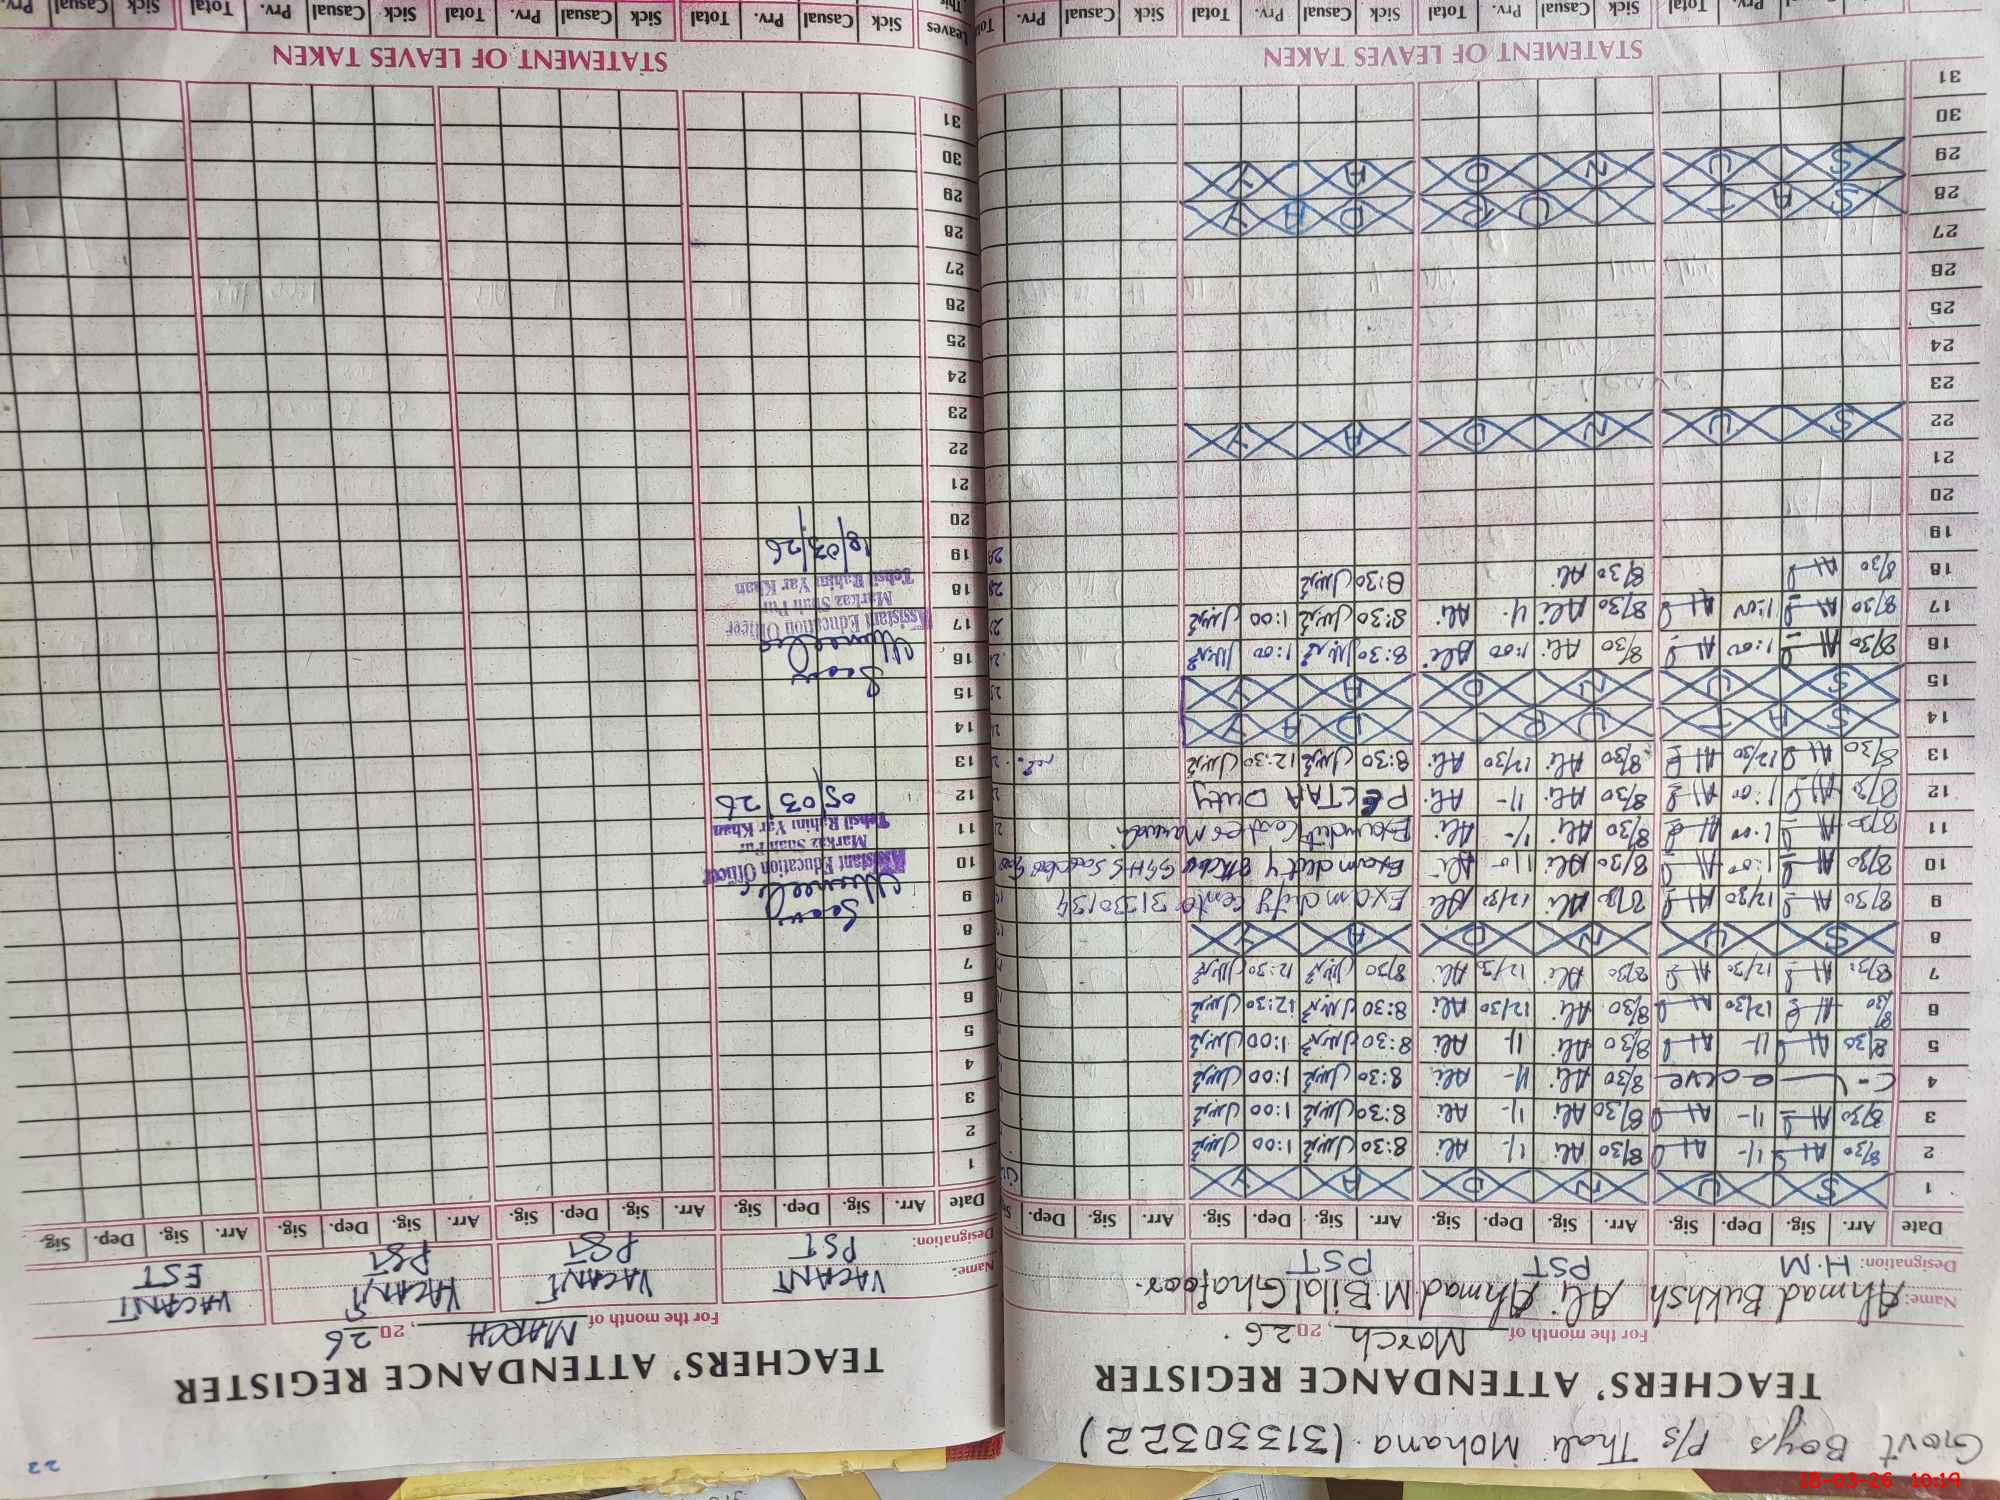 Govt Boys P/s Thali Mohana (31330322)
TEACHERS' ATTENDANCE REGISTER
For the month of March, 2026.
Name: Ahmad Bukhsh Ali Ahmad M. Bilal Ghafoor.
Designation: H.M PST PST
Date Arr. Sig. Dep. Sig. Arr. Sig. Dep. Sig. Arr. Sig. Dep. Sig. Arr. Sig. Dep.
1 S U N D A Y
2 8/30 11- 8/30 Ali 11- Ali 8:30 1:00
3 8/30 11- 8/30 Ali 11- Ali 8:30 1:00
4 C- Leave 8/30 Ali 11- Ali 8:30 1:00
5 8/30 11- 8/30 Ali 11- Ali 8:30 1:00
6 8/30 12/30 8/30 Ali 12/30 Ali 8:30 12:30
7 8/30 12/30 8/30 Ali 12/30 Ali 8/30 12:30
8 S U N D A Y
9 8/30 12/30 8/30 Ali 12/30 Ali Exam duty center 31330134
10 8/30 1:00 8/30 Ali 11- Ali Exam duty GGHS
11 8/30 1:00 8/30 Ali 11- Ali Exam duty
12 8/30 1:00 8/30 Ali 11- Ali PECTAA Duty
13 8/30 12/30 8/30 Ali 12/30 Ali 8:30 12:30
14 S A T U R D A Y
15 S U N D A Y
16 8/30 1:00 8/30 Ali 1:00 Ali 8:30 1:00
17 8/30 1:00 8/30 Ali 11- Ali 8:30 1:00
18 8/30 8/30 Ali 8:30
19
20
21
22 S U N D A Y
23
24
25
26
27
28 S A T U R D A Y
29 S U N D A Y
30
31
STATEMENT OF LEAVES TAKEN
Sick Casual Prv. Total Sick Casual Prv. Total Sick Casual Prv.
22
TEACHERS' ATTENDANCE REGISTER
For the month of MARCH, 2026
Name: VACANT VACANT VACANT VACANT
Designation: PST PST PST EST
Date Arr. Sig. Dep. Sig. Arr. Sig. Dep. Sig. Arr. Sig. Dep. Sig. Arr. Sig. Dep. Sig.
1
2
3
4
5
6
7
8
9 Seen
10 Assistant Education Officer
11 Markaz Shah Pur
Tehsil Rahim Yar Khan
12 05/03/26
13
14
15 Seen
16
17 Assistant Education Officer
Markaz Shah Pur
18 Tehsil Rahim Yar Khan
19 18/03/26
20
21
22
23
24
25
26
27
28
29
30
31
STATEMENT OF LEAVES TAKEN
Leaves Sick Casual Prv. Total Sick Casual Prv. Total Sick Casual Prv. Total Sick Casual Prv.
18-03-26 10:19